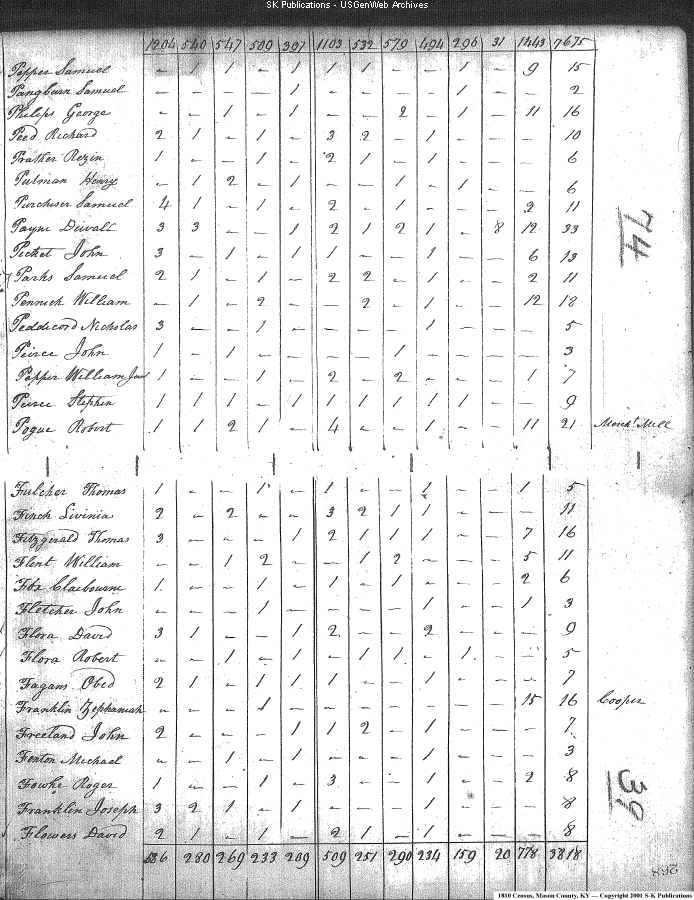 SK Publications - USGenWeb Archives
1204 540 547 509 307 1103 532 579 494 296 31 1443 7675
Pepper Samuel – 1 1 – 1 1 1 – – 1 – 9 15
Pangburn Samuel – – – – 1 – – – – 1 – – 2
Philips George – – 1 – 1 – – 2 – 1 – 11 16
Peed Richard 2 1 – 1 – 3 2 – 1 – – – 10
Prather Rezin 1 – – 1 – 2 1 – 1 – – – 6
Putman Henry – 1 2 – 1 – – 1 – 1 – – 6
Purchiser Samuel 4 1 – 1 – 2 – 1 – – – 2 11
Payne Duvall 3 3 – – 1 2 1 2 1 – 8 12 33
Picket John 3 – 1 – 1 1 – – 1 – – 6 13
Parks Samuel 2 1 – 1 – 2 2 – 1 – – 2 11
Pennick William – 1 – 2 – – 2 – 1 – – 12 18
Peddicord Nicholas 3 – – 1 – – – – 1 – – – 5
Peirce John 1 – 1 – – – – 1 – – – – 3
Pepper William Junr 1 – – 1 – 2 – 2 – – – 1 7
Peirce Stephen 1 1 1 – 1 1 1 1 1 1 – – 9
Pogue Robert 1 1 2 1 – 4 – – 1 – – 11 21 Mercht Mill
74
Fulcher Thomas 1 – – 1 – 1 – – 1 – – 1 5
Finch Livinia 2 – 2 – – 3 2 1 1 – – – 11
Fitzgerald Thomas 3 – – – 1 2 1 1 1 – – 7 16
Flent William – – 1 2 – – 1 2 – – – 5 11
Fox Claibourne 1 – – 1 – 1 – 1 – – – 2 6
Fletcher John – – – 1 – – – – 1 – – 1 3
Flora David 3 1 – – 1 2 – – 2 – – – 9
Flora Robert – – 1 – 1 – 1 1 – 1 – – 5
Fagans Obed 2 1 – 1 – 1 1 – 1 – – – 7
Franklin Zephaniah – – – 1 – – – – – – – 15 16 Cooper
Freeland John 2 – – – 1 1 2 – 1 – – – 7
Fenton Michael – – 1 – 1 – – – 1 – – – 3
Fowke Roger 1 – – 1 – 3 – – 1 – – 2 8
Franklin Joseph 3 2 1 – 1 – – – 1 – – – 8
Flowers David 2 1 – 1 – 2 1 – 1 – – – 8
39
280 269 233 209 509 251 290 234 159 20 778 3818
268
1810 Census, Mason County, KY — Copyright 2001 S-K Publications